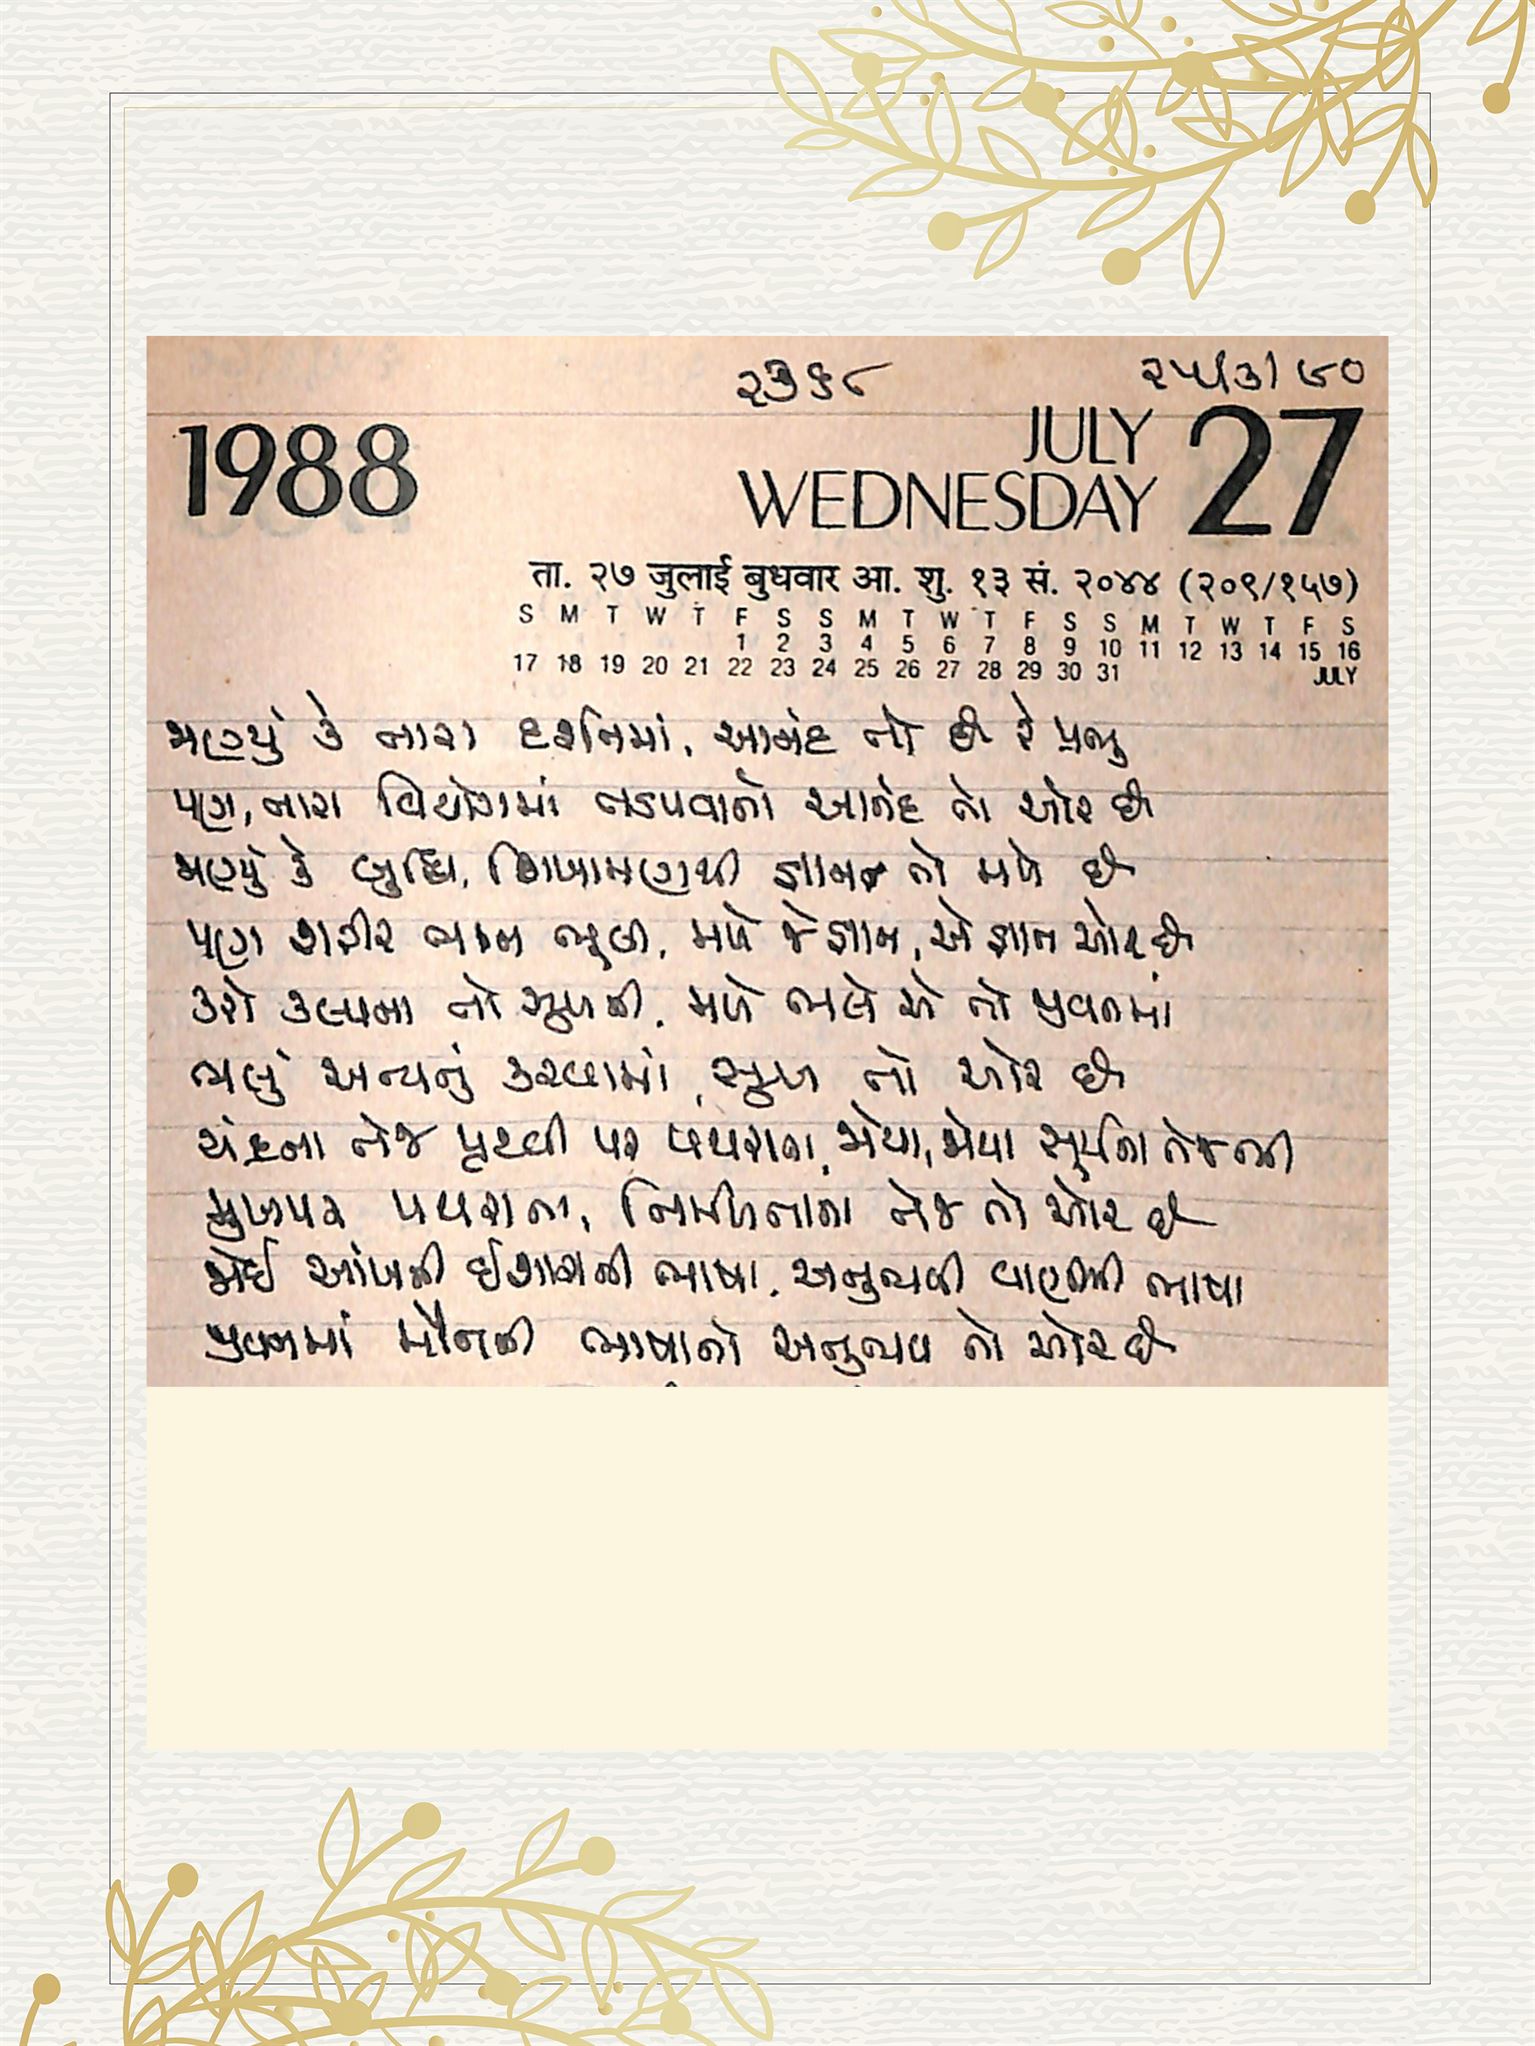 ૨૩૬૮
૨૫/૩/૯૦
1988
JULY 27
WEDNESDAY
ता. २७ जुलाई बुधवार आ. शु. १३ सं. २०४४ (२०९/१५७)
S M T W T F S S M T W T F S S M T W T F S
1 2 3 4 5 6 7 8 9 10 11 12 13 14 15 16
17 18 19 20 21 22 23 24 25 26 27 28 29 30 31 JULY
માણ્યું કે તારા દર્શનમાં, આનંદ તો છે રે પ્રભુ
પણ, તારા વિયોગમાં તડપવાનો આનંદ તો ઓર છે
માણ્યું કે બુદ્ધિ, શિખામણથી જ્ઞાન તો મળે છે
પણ શરીર ભાન ભૂલી, મળે જે જ્ઞાન, એ જ્ઞાન ઓર છે
કરો કલ્પના તો સુખની, મળે ભલે એ તો જીવનમાં
ભલું અન્યનું કરવામાં, સુખ તો ઓર છે
ચંદ્રના તેજ પૃથ્વી પર પથરાતા, જોયા, જોયા સૂર્યના તેજ ભી
મુખપર પથરાતા, નિર્મળતાના તેજ તો ઓર છે
જોઈ આંખની ઈશારાની ભાષા, અનુભવી વાણીની ભાષા
જીવનમાં મૌનની ભાષાનો અનુભવ તો ઓર છે